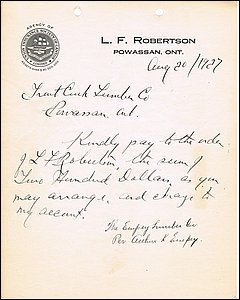 AGENCY OF
L. F. ROBERTSON
POWASSAN, ONT.
Aug 20/1927
Trout Creek Lumber Co
Powassan, Ont.
Kindly pay to the order
of L F Robertson, the sum of
Two Hundred Dollars, as you
may arrange, and charge to
my account.
The Empey Lumber Co
Per Arthur L Empey.